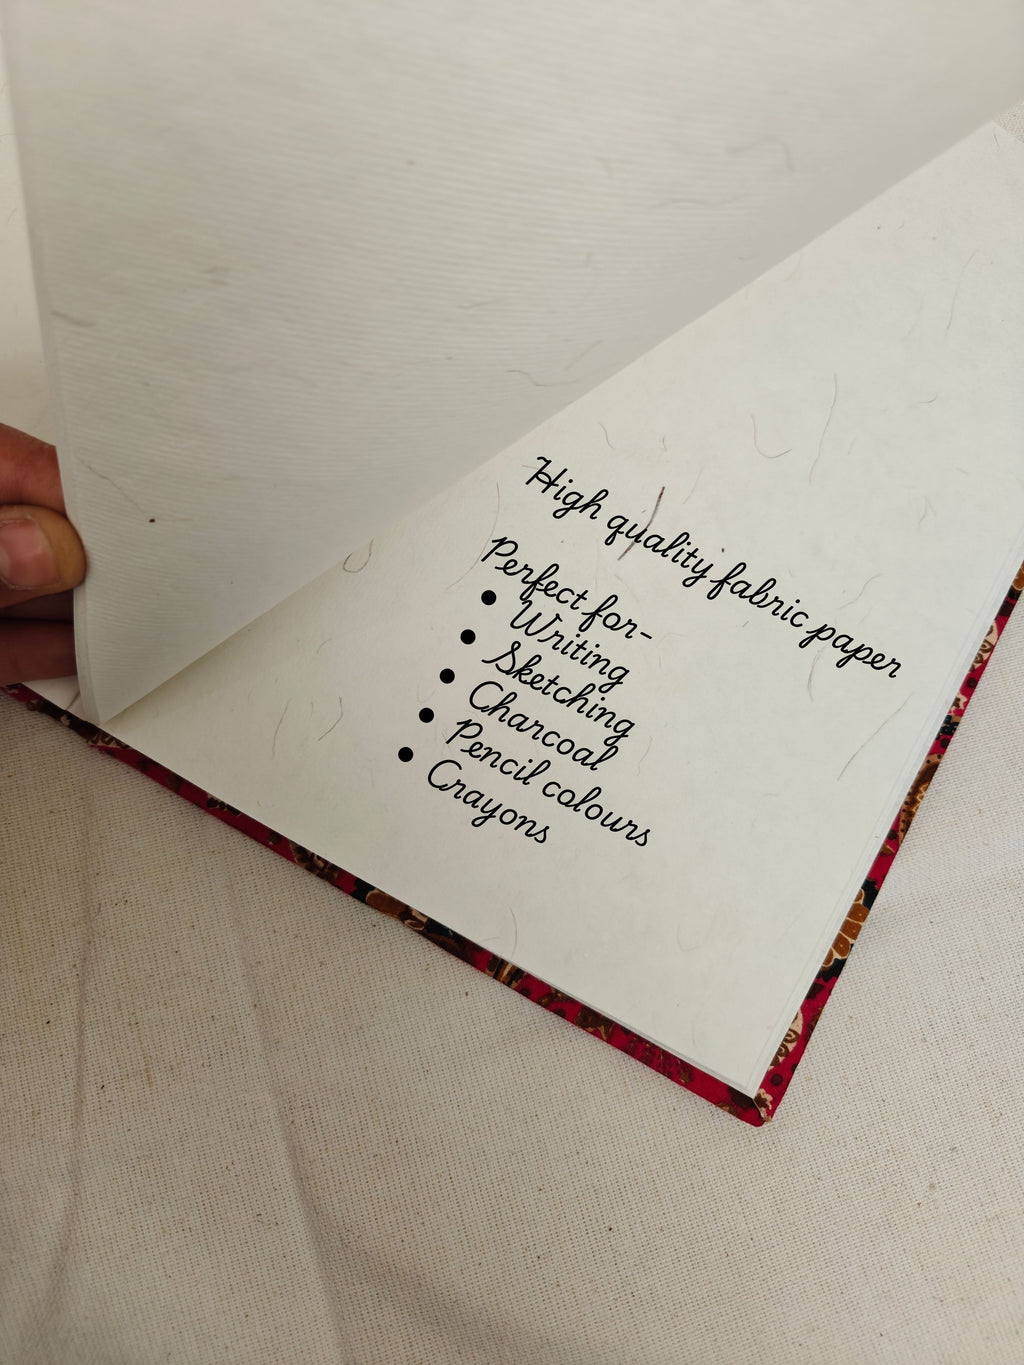 High quality fabric paper
Perfect for-
• Writing
• Sketching
• Charcoal
• Pencil colours
• Crayons